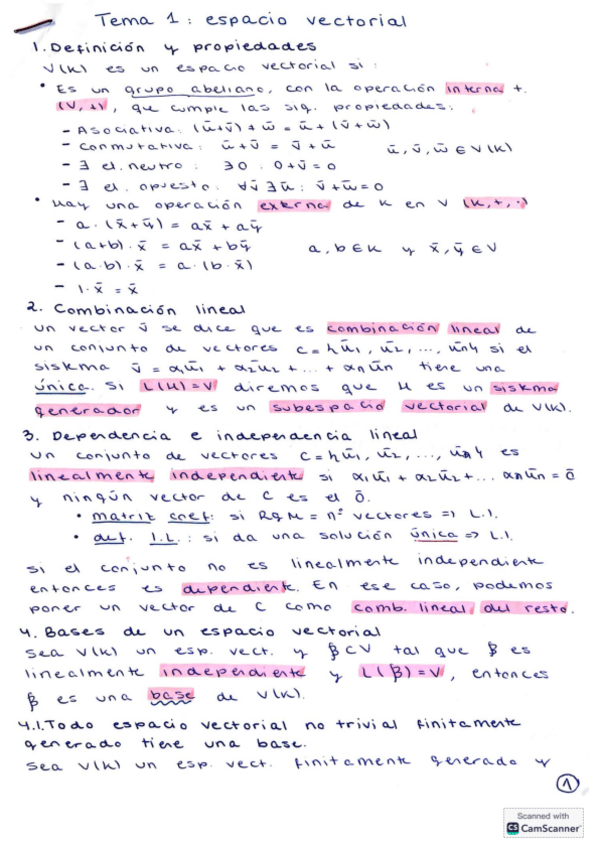 Tema 1: espacio vectorial
1. Definición y propiedades
V(K) es un espacio vectorial si:
• Es un grupo abeliano, con la operación interna +.
(V, +), que cumple las sig. propiedades:
- Asociativa: (ū+v̄) + w̄ = ū + (v̄+w̄)
- Conmutativa: ū+v̄ = v̄+ū     ū, v̄, w̄ ∈ V(K)
- ∃ el. neutro: ∃0: 0+v̄=0
- ∃ el. opuesto: ∀v̄ ∃ū: v̄+w̄=0
• Hay una operación externa de K en V (K,+,·)
- a·(x̄+ȳ) = ax̄ + aȳ
- (a+b)·x̄ = ax̄ + bȳ     a, b ∈ K y x̄, ȳ ∈ V
- (a·b)·x̄ = a·(b·x̄)
- 1·x̄ = x̄
2. Combinación lineal
Un vector v̄ se dice que es combinación lineal de
un conjunto de vectores C={ū1, ū2, ..., ūn} si el
sistema v̄ = α1ū1 + α2ū2 + ... + αnūn tiene una
única. Si L(M)=V diremos que M es un sistema
generador y es un subespacio vectorial de V(K).
3. Dependencia e independencia lineal
Un conjunto de vectores C={ū1, ū2, ..., ūn} es
linealmente independiente si α1ū1 + α2ū2 + ... αnūn = 0̄
y ningún vector de C es el 0̄.
• matriz coef: si Rg M = nº vectores => L.I.
• def. I.L.: si da una solución única => L.I.
Si el conjunto no es linealmente independiente
entonces es dependiente. En ese caso, podemos
poner un vector de C como comb. lineal del resto.
4. Bases de un espacio vectorial
Sea V(K) un esp. vect. y β⊂V tal que β es
linealmente independiente y L(β)=V, entonces
β es una base de V(K).
4.1. Todo espacio vectorial no trivial finitamente
generado tiene una base.
Sea V(K) un esp. vect. finitamente generado y
1
Scanned with
CS CamScanner